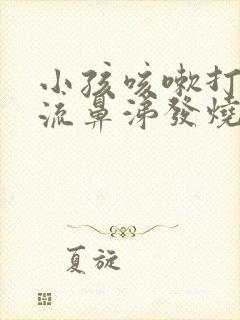 小孩咳嗽打
流鼻涕發燒
夏旋